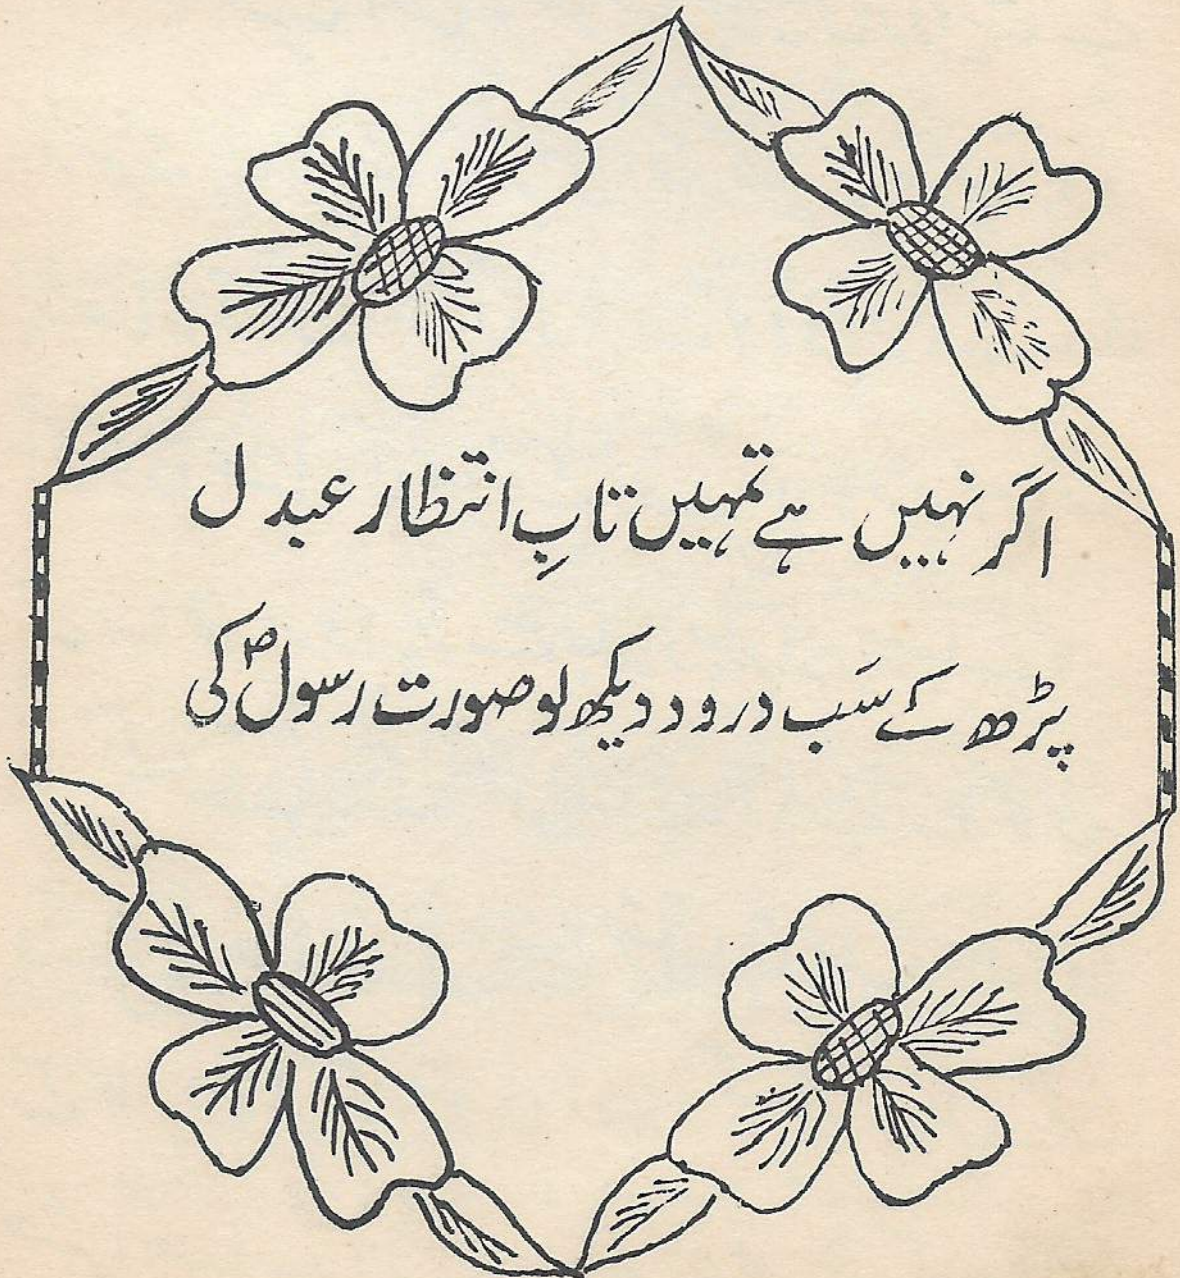 اگر نہیں ہے تمہیں تابِ انتظار عبدل
پڑھ کے سَب درود دیکھ لو صورت رسولؐ کی